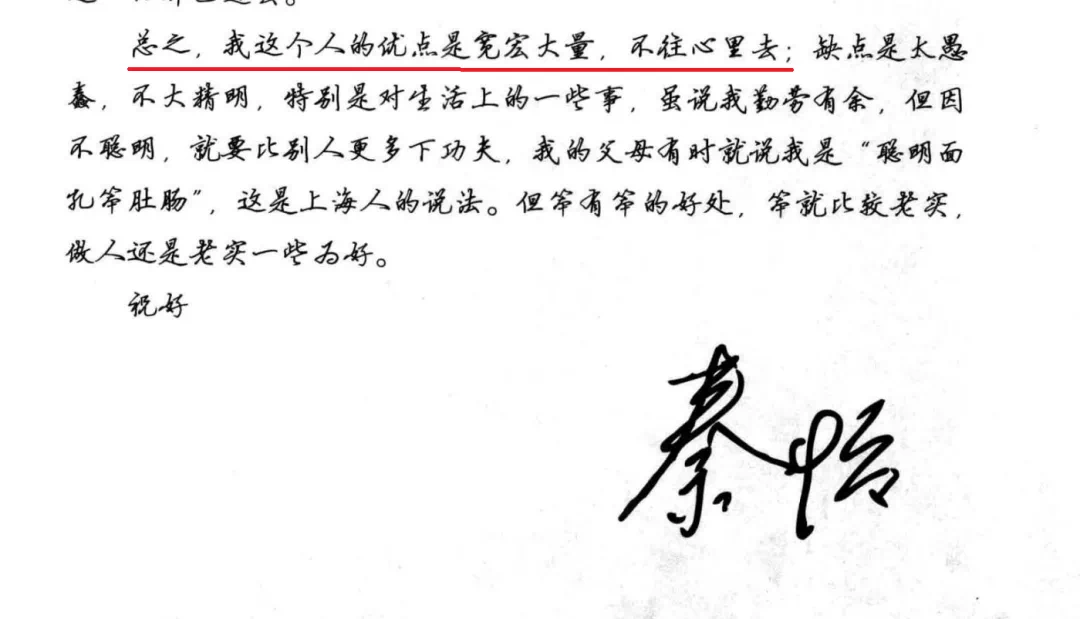 总之，我这个人的优点是宽宏大量，不往心里去；缺点是太愚
蠢，不大精明，特别是对生活上的一些事，虽说我勤劳有余，但因
不聪明，就要比别人更多下功夫，我的父母有时就说我是“聪明面
孔笨肚肠”，这是上海人的说法。但笨有笨的好处，笨就比较老实，
做人还是老实一些为好。
祝好
秦怡